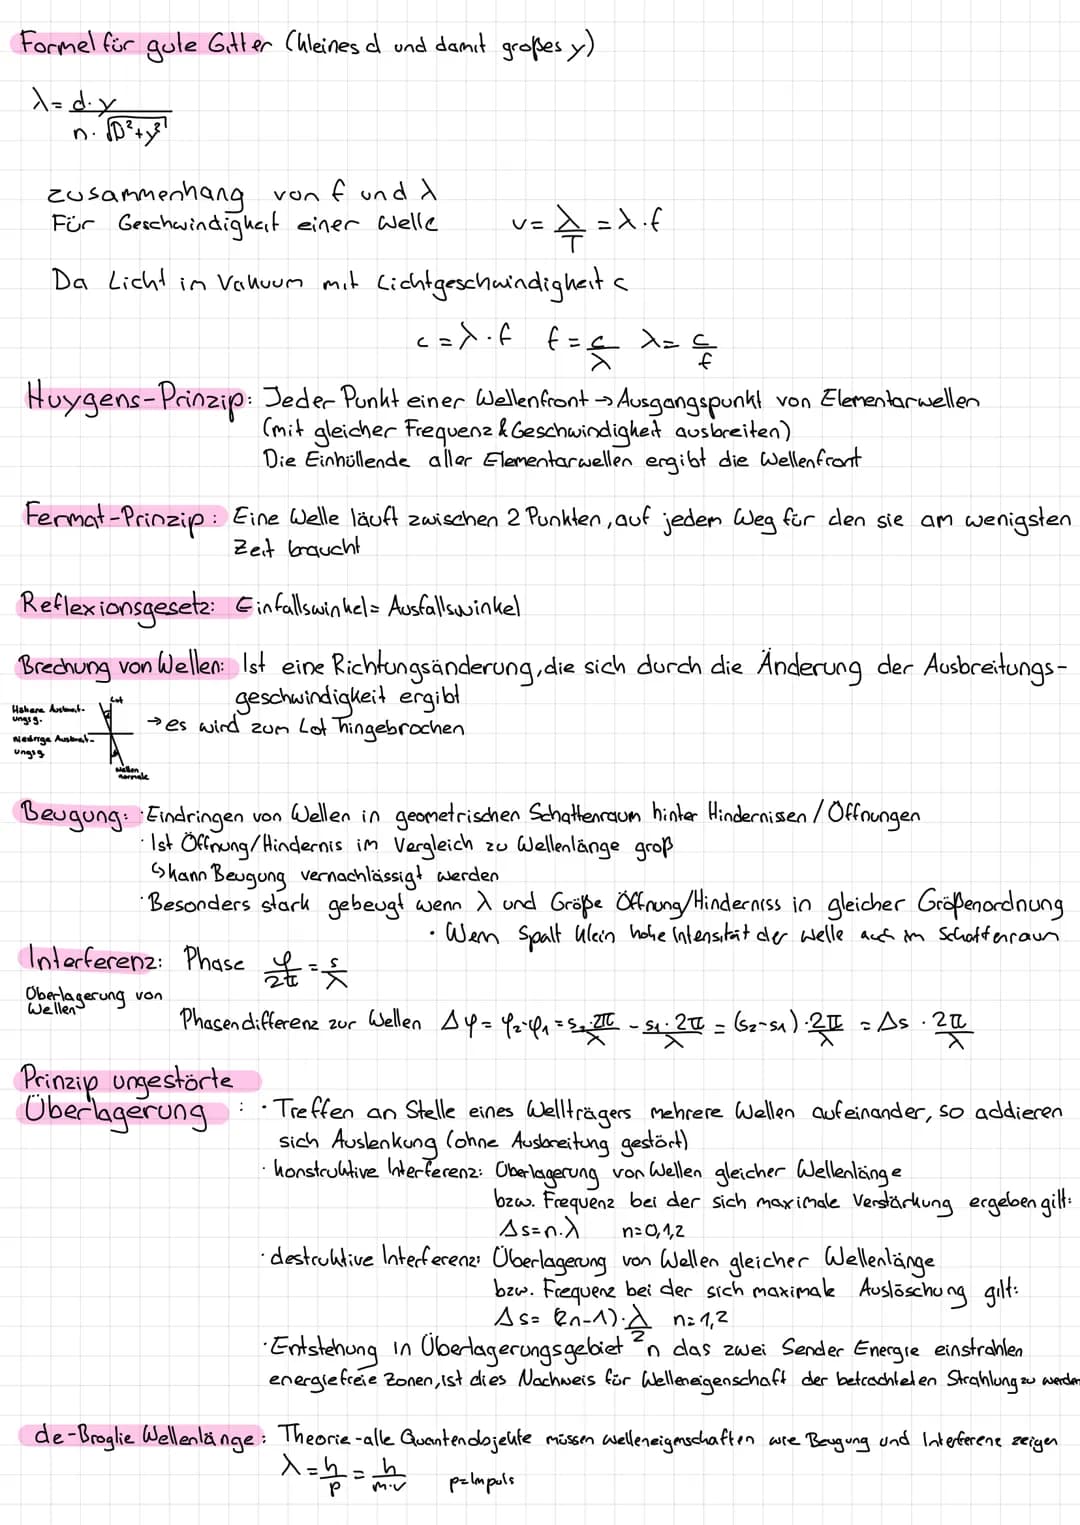 Formel für gute Gitter (kleines d und damit großes y)
λ = d·y / n·√D²+y²
Zusammenhang von f und λ
Für Geschwindigkeit einer Welle v = λ/T = λ·f
Da Licht in Vakuum mit Lichtgeschwindigkeit c
c = λ·f f = c/λ λ = c/f
Huygens-Prinzip: Jeder Punkt einer Wellenfront → Ausgangspunkt von Elementarwellen
(mit gleicher Frequenz & Geschwindigkeit ausbreiten)
Die Einhüllende aller Elementarwellen ergibt die Wellenfront
Fermat-Prinzip: Eine Welle läuft zwischen 2 Punkten, auf jedem Weg für den sie am wenigsten
Zeit braucht
Reflexionsgesetz: Einfallswinkel = Ausfallswinkel
Brechung von Wellen: Ist eine Richtungsänderung, die sich durch die Änderung der Ausbreitungs-
geschwindigkeit ergibt
→ es wird zum Lot hingebrochen
Lot
Höhere Ausbreit-
ungsg.
Niedrige Ausbreit-
ungsg
Wellen
normale
Beugung: · Eindringen von Wellen in geometrischen Schattenraum hinter Hindernissen / Öffnungen
· Ist Öffnung/Hindernis im Vergleich zu Wellenlänge groß
↳ kann Beugung vernachlässigt werden
· Besonders stark gebeugt wenn λ und Größe Öffnung/Hinderniss in gleicher Größenordnung
· Wenn Spalt klein hohe Intensität der Welle auch im Schattenraum
Interferenz: Phase φ/2π = s/λ
Überlagerung von
Wellen
Phasendifferenz zur Wellen Δφ = φ₂-φ₁ = s₂·2π/λ - s₁·2π/λ = (s₂-s₁)·2π/λ = Δs·2π/λ
Prinzip ungestörte
Überlagerung : · Treffen an Stelle eines Wellträgers mehrere Wellen aufeinander, so addieren
sich Auslenkung (ohne Ausbreitung gestört)
· konstruktive Interferenz: Überlagerung von Wellen gleicher Wellenlänge
bzw. Frequenz bei der sich maximale Verstärkung ergeben gilt:
Δs = n·λ n=0,1,2
· destruktive Interferenz: Überlagerung von Wellen gleicher Wellenlänge
bzw. Frequenz bei der sich maximale Auslöschung gilt:
Δs = (2n-1)·λ/2 n=1,2
· Entstehung in Überlagerungsgebiet n das zwei Sender Energie einstrahlen
energiefreie Zonen, ist dies Nachweis für Welleneigenschaft der betrachteten Strahlung zu werden
de-Broglie Wellenlänge: Theorie - alle Quantenobjekte müssen Welleneigenschaften wie Beugung und Interferenz zeigen
λ = h/p = h/m·v p=Impuls